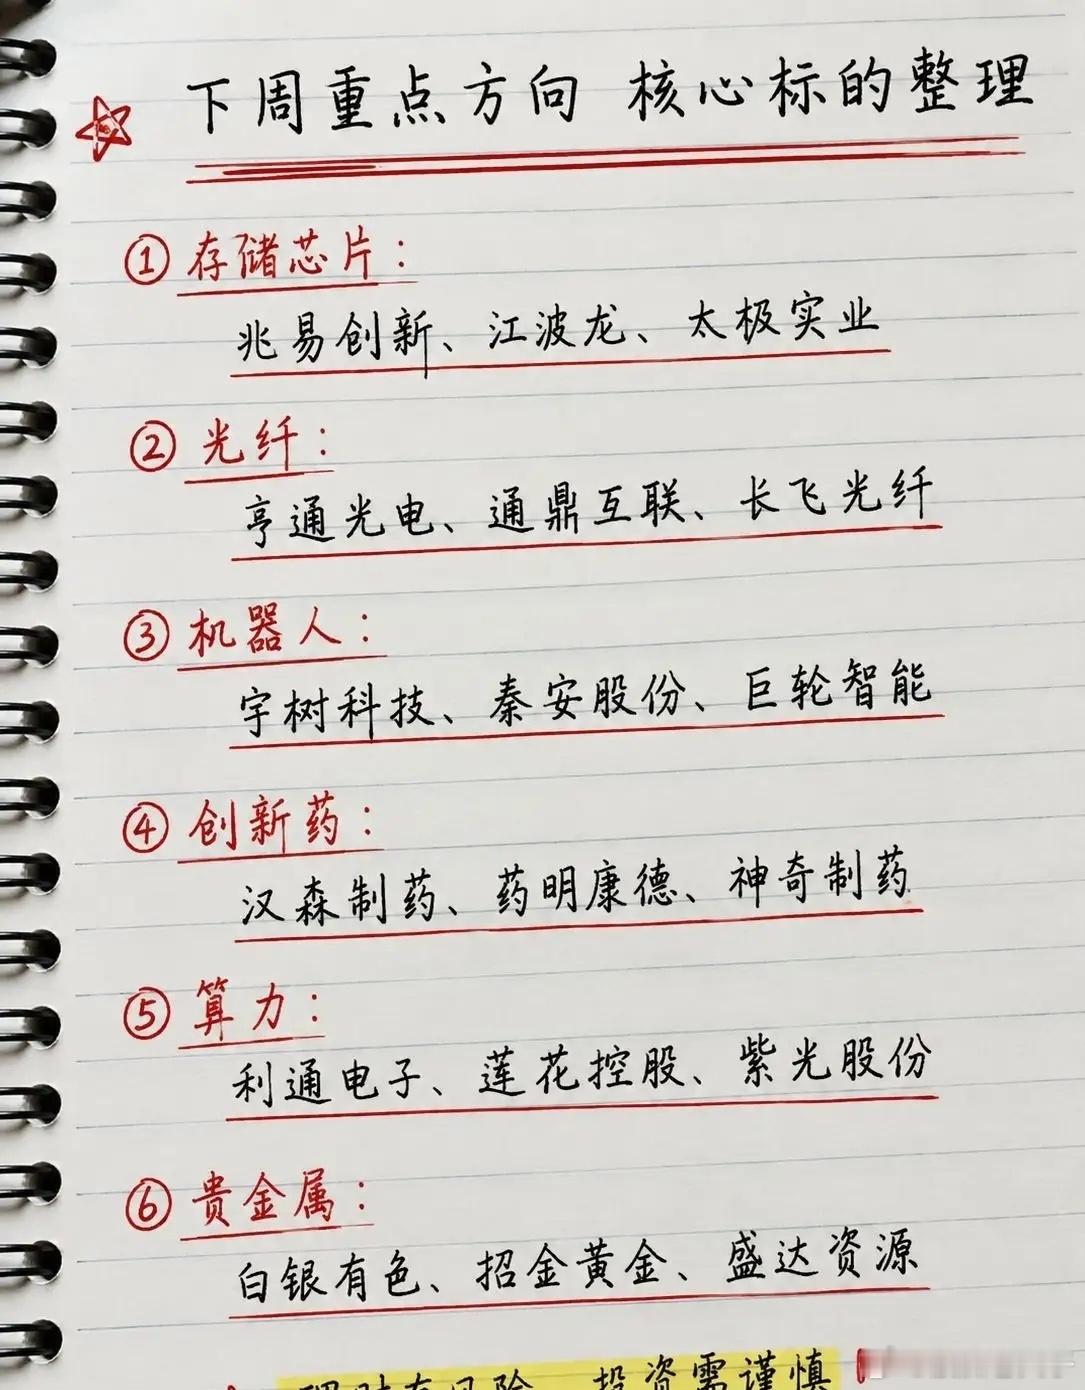 下周重点方向 核心标的整理
①存储芯片：
兆易创新、江波龙、太极实业
②光纤：
亨通光电、通鼎互联、长飞光纤
③机器人：
宇树科技、秦安股份、巨轮智能
④创新药：
汉森制药、药明康德、神奇制药
⑤算力：
利通电子、莲花控股、紫光股份
⑥贵金属：
白银有色、招金黄金、盛达资源
理财有风险 投资需谨慎